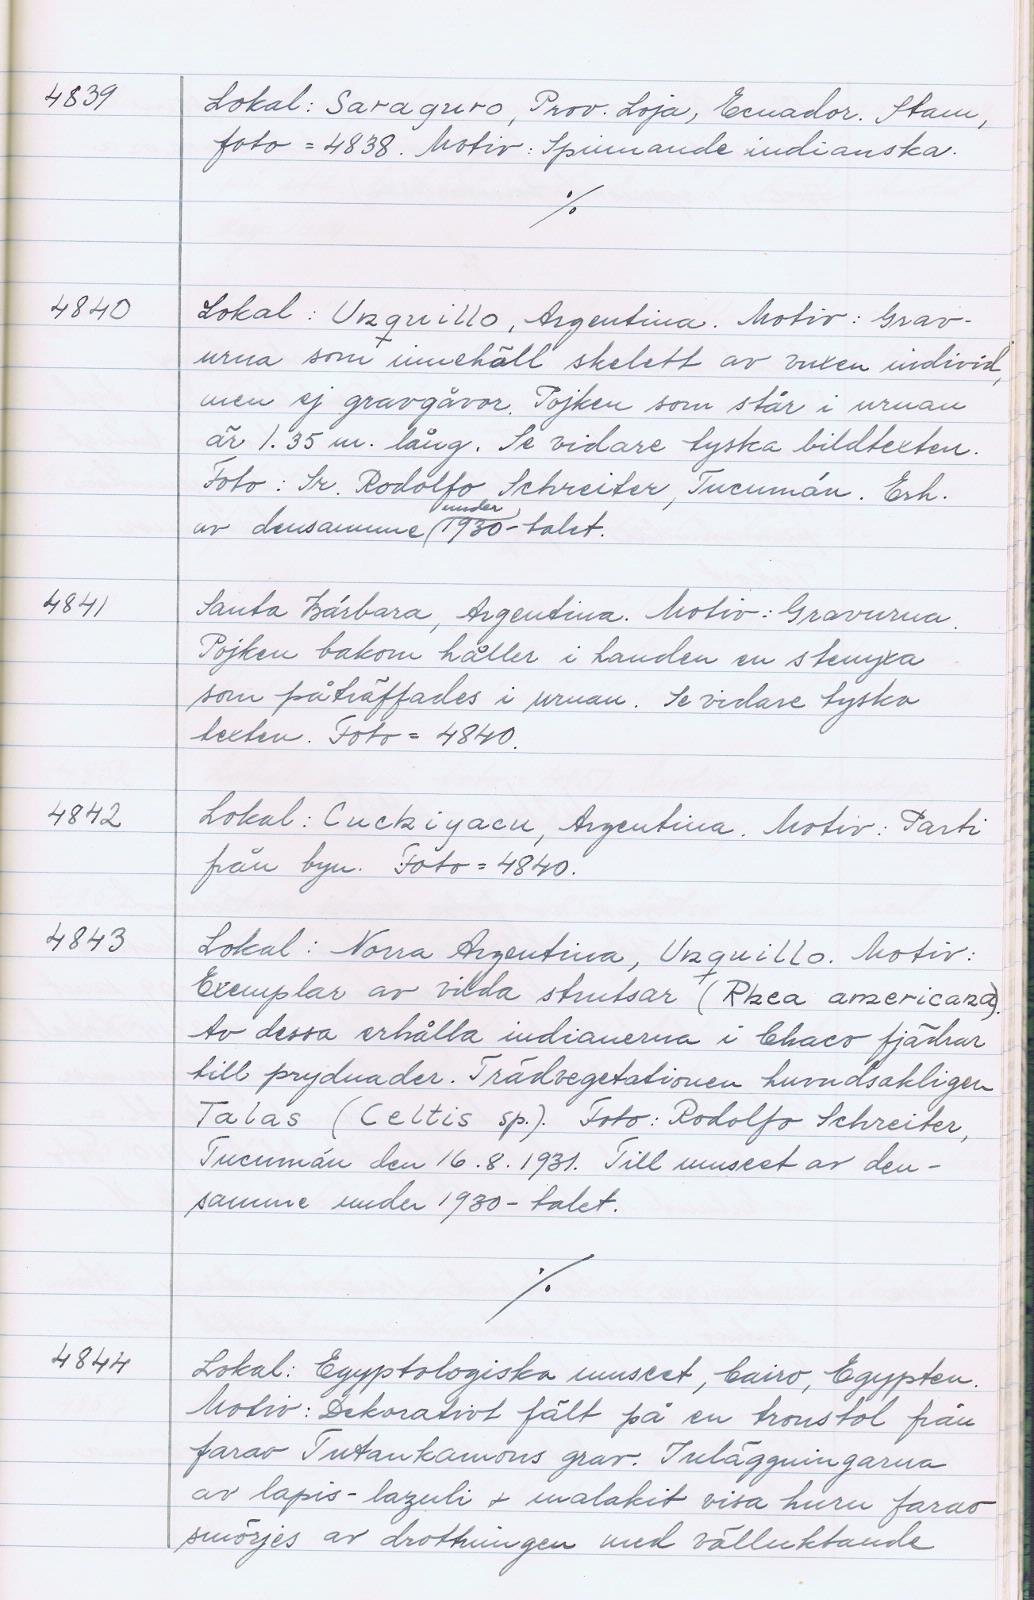 4839 Lokal: Saraguro, Prov. Loja, Ecuador. Stam,
foto = 4838. Motiv: Spinnande indianska.
·/.
4840 Lokal: Unquillo, Argentina. Motiv: Grav-
urna som innehåll skelett av vuxen individ,
men ej gravgåvor. Pojken som står i urnan
är 1.35 m. lång. Se vidare tyska bildtexten.
Foto: Sr. Rodolfo Schreiter, Tucumán. Erh.
av densamme (under) 1930-talet.
4841 Santa Bárbara, Argentina. Motiv: Gravurna.
Pojken bakom håller i handen en stenyxa
som påträffades i urnan. Se vidare tyska
texten. Foto = 4840.
4842 Lokal: Cuchiyacu, Argentina. Motiv: Parti
från byn. Foto = 4840.
4843 Lokal: Norra Argentina, Unquillo. Motiv:
Exemplar av vilda strutsar (Rhea americana).
Av dessa erhålla indianerna i Chaco fjädrar
till prydnader. Trädvegetationen huvudsakligen
Talas (Celtis sp.). Foto: Rodolfo Schreiter,
Tucumán den 16.8.1931. Till museet av den-
samme under 1930-talet.
·/.
4844 Lokal: Egyptologiska museet, Cairo, Egypten.
Motiv: Dekorativt fält på en tronstol från
farao Tutankamons grav. Inläggningarna
av lapis-lazuli & malakit visa huru farao
smörjes av drottningen med välluktande